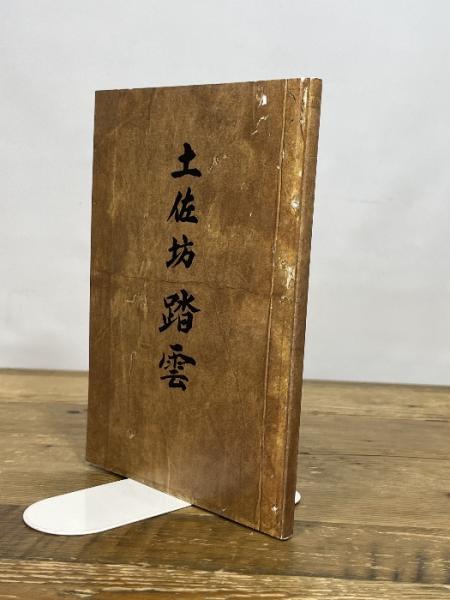 土佐坊踏雲